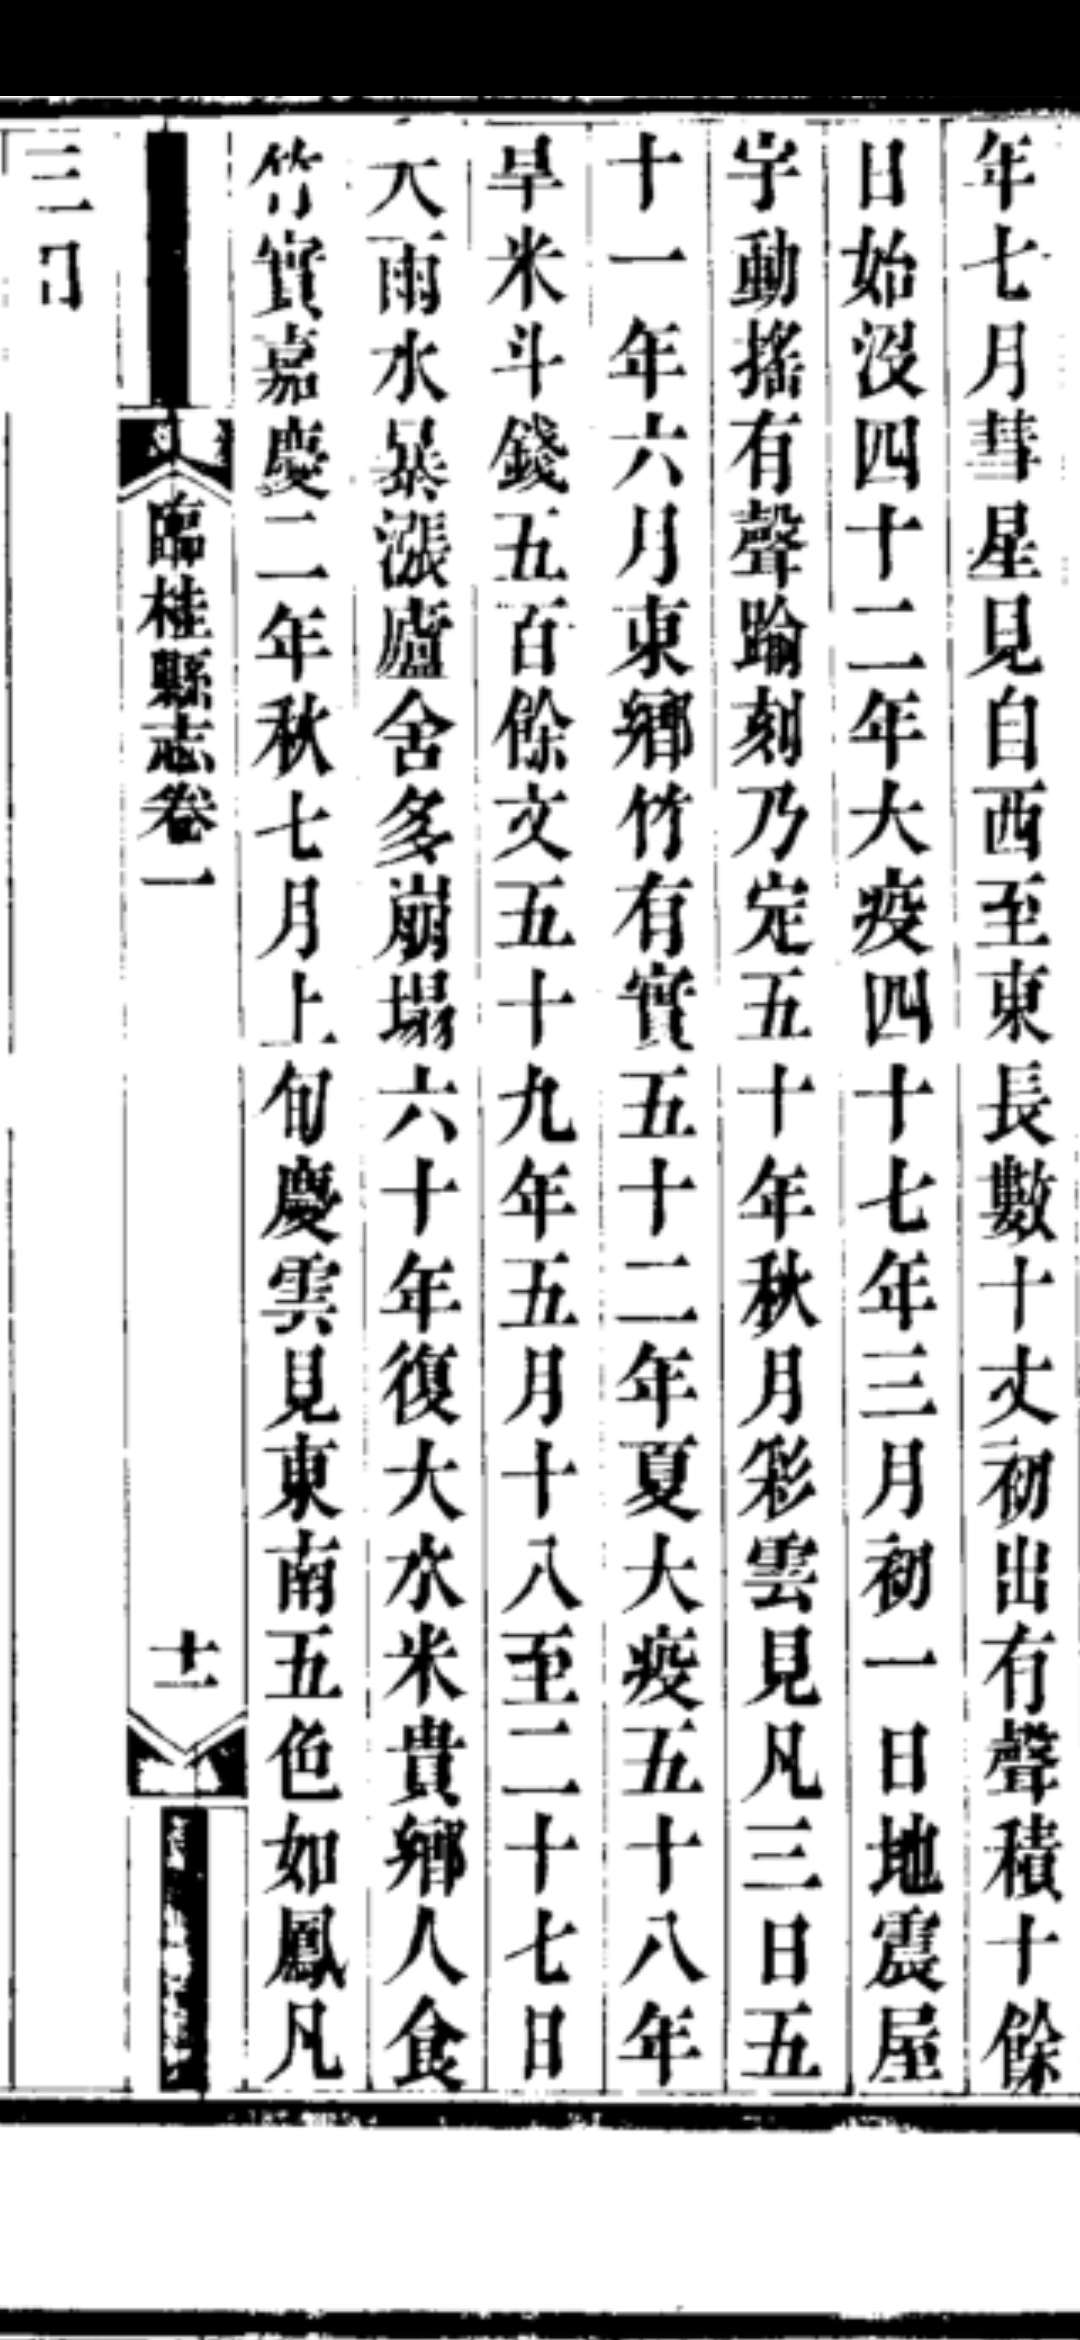 年七月彗星見自西至東長數十丈初出有聲積十餘
日始沒四十二年大疫四十七年三月初一日地震屋
宇動搖有聲踰刻乃定五十年秋月彩雲見凡三日五
十一年六月東鄉竹有實五十二年夏大疫五十八年
旱米斗錢五百餘文五十九年五月十八至二十七日
大雨水暴漲廬舍多崩塌六十年復大水米貴鄉人食
竹實嘉慶二年秋七月上旬慶雲見東南五色如鳳凡
臨桂縣志卷一 十二
三日